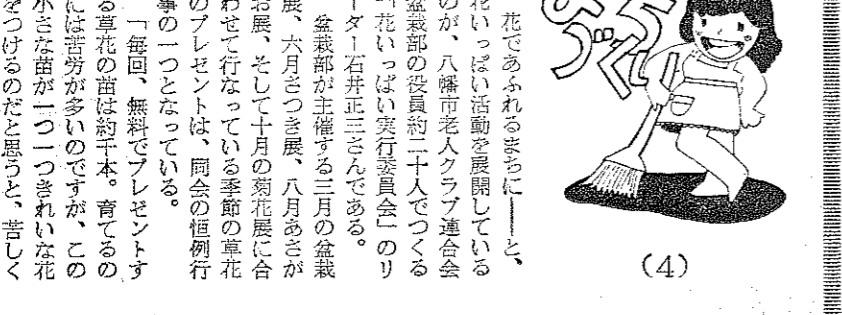 (4)
花であふれるまちに――と、
花いっぱい活動を展開している
のが、八幡市老人クラブ連合会
盆栽部の役員約二十人でつくる
「花いっぱい実行委員会」のリ
ーダー石井正三さんである。
盆栽部が主催する三月の盆栽
展、六月さつき展、八月あさが
お展、そして十月の菊花展に合
わせて行なっている季節の草花
のプレゼントは、同会の恒例行
事の一つとなっている。
「毎回、無料でプレゼントす
る草花の苗は約千本。育てるの
には苦労が多いのですが、この
小さな苗が一つ一つきれいな花
をつけるのだと思うと、苦しく